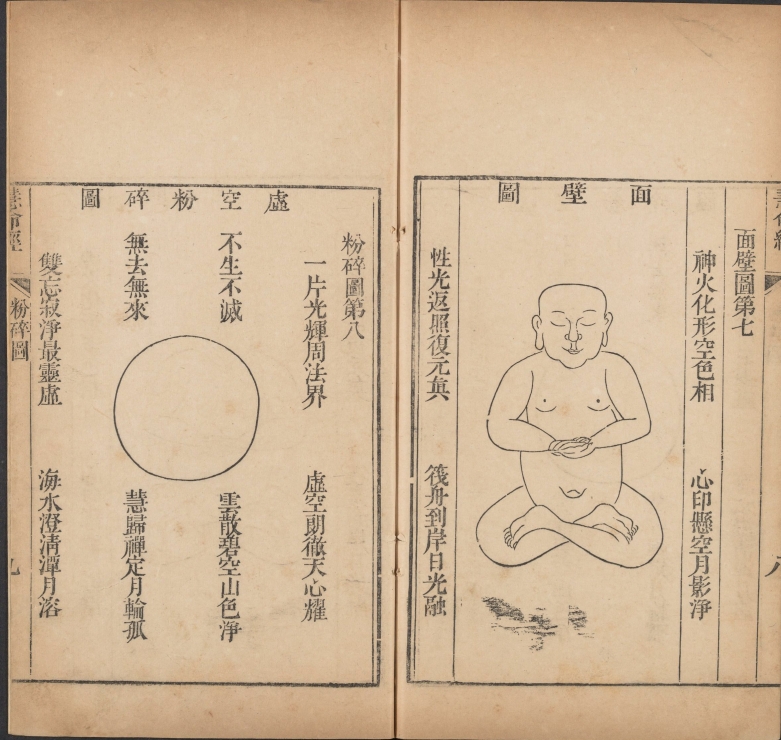 面壁圖第七
神火化形空色相　心印懸空月影淨
面壁圖
性光返照復元真　筏舟到岸日光融
八
粉碎圖第八
一片光輝周法界　虛空朗徹天心耀
虛空粉碎圖
不生不滅　雲散碧空山色淨
無去無來　慧歸禪定月輪孤
雙忘寂淨最靈虛　海水澄清潭月溶
慧命經
粉碎圖
九